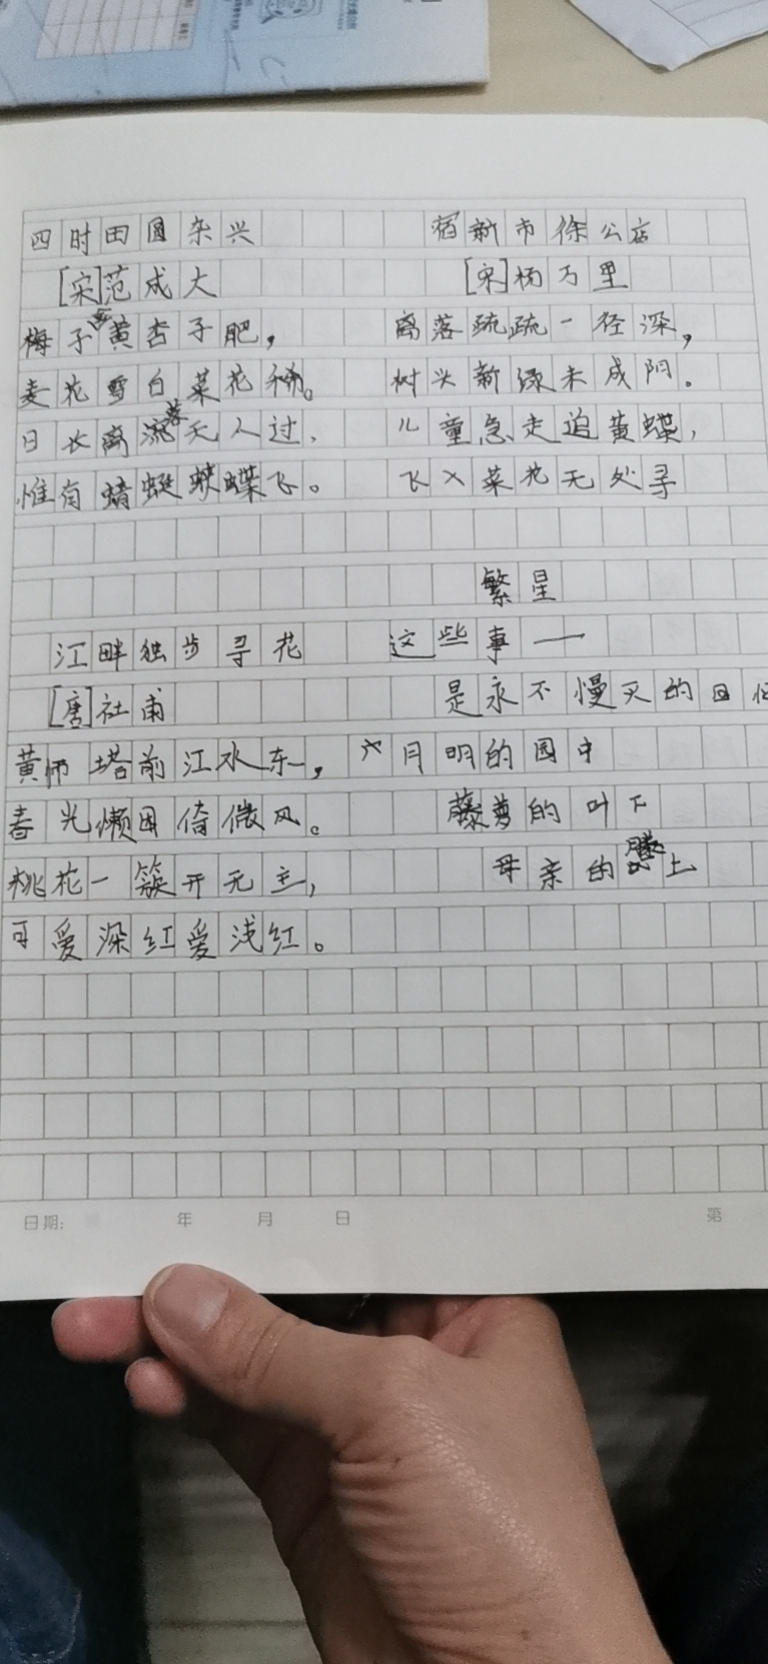 四时田圆杂兴
[宋]范成大
梅子黄杏子肥，
麦花雪白菜花稀。
日长离落无人过，
惟有蜻蜓蛱蝶飞。
宿新市徐公店
[宋]杨万里
离落疏疏一径深，
树头新绿未成阴。
儿童急走追黄蝶，
飞入菜花无处寻
江畔独步寻花
[唐]杜甫
黄师塔前江水东，
春光懒困倚微风。
桃花一簇开无主，
可爱深红爱浅红。
繁星
这些事——
是永不慢灭的回忆
六月明的园中
藤萝的叶下
母亲的膝上
日期: 年 月 日 第